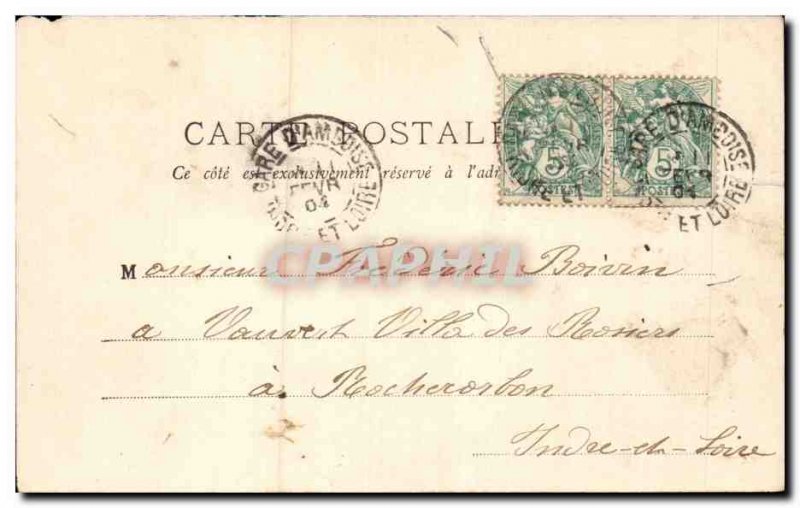 CARTE POSTALE
Ce côté est exclusivement réservé à l'adr
GARE D'AMBOISE
11
FEVR
04
INDRE ET LOIRE
5
POSTES
5
POSTES
GARE D'AMBOISE
11
FEVR
04
ET LOIRE
CPAPHIL
Monsieur Frederic Boivin
a Vauvert Villa des Rosiers
à Rochecorbon
Indre-et-Loire